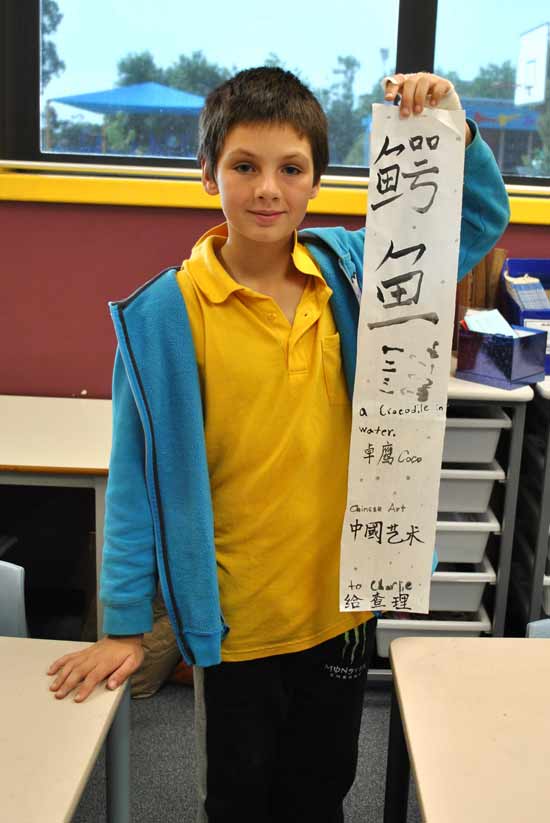 鳄
鱼
a Crocodile in
water.
卓鹰 Coco
Chinese Art
中國艺术
to Charlie
给查理
MONSTER
ENERGY